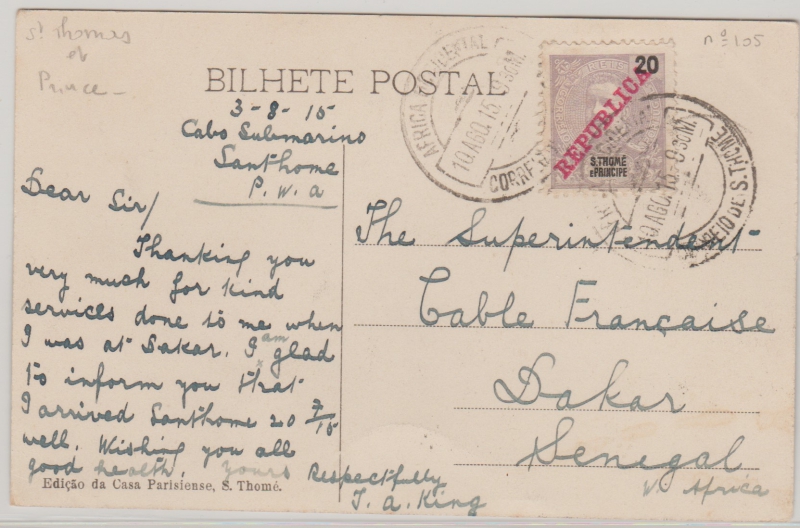 St Thomes
et
Prince —
nº 105
BILHETE POSTAL
AFRICA OCCIDENTAL
10 AGO. 15 8.30 M.
CORREIO
20
REPUBLICA
S. THOMÉ
E PRINCIPE
10 AGO. 15 8.30 M.
CORREIO DE S. THOMÉ
3-8-15
Cabo Submarino
Santhome
P.W.A
Dear Sir/
Thanking you
very much for kind
services done to me when
I was at Dakar. I am glad
to inform you that
I arrived Santhome 20 7/15
well. Wishing you all
good health. yours Respectfully
J. A. King
The Superintendent
Cable Française
Dakar
Senegal
W. Africa
Edição da Casa Parisiense, S. Thomé.